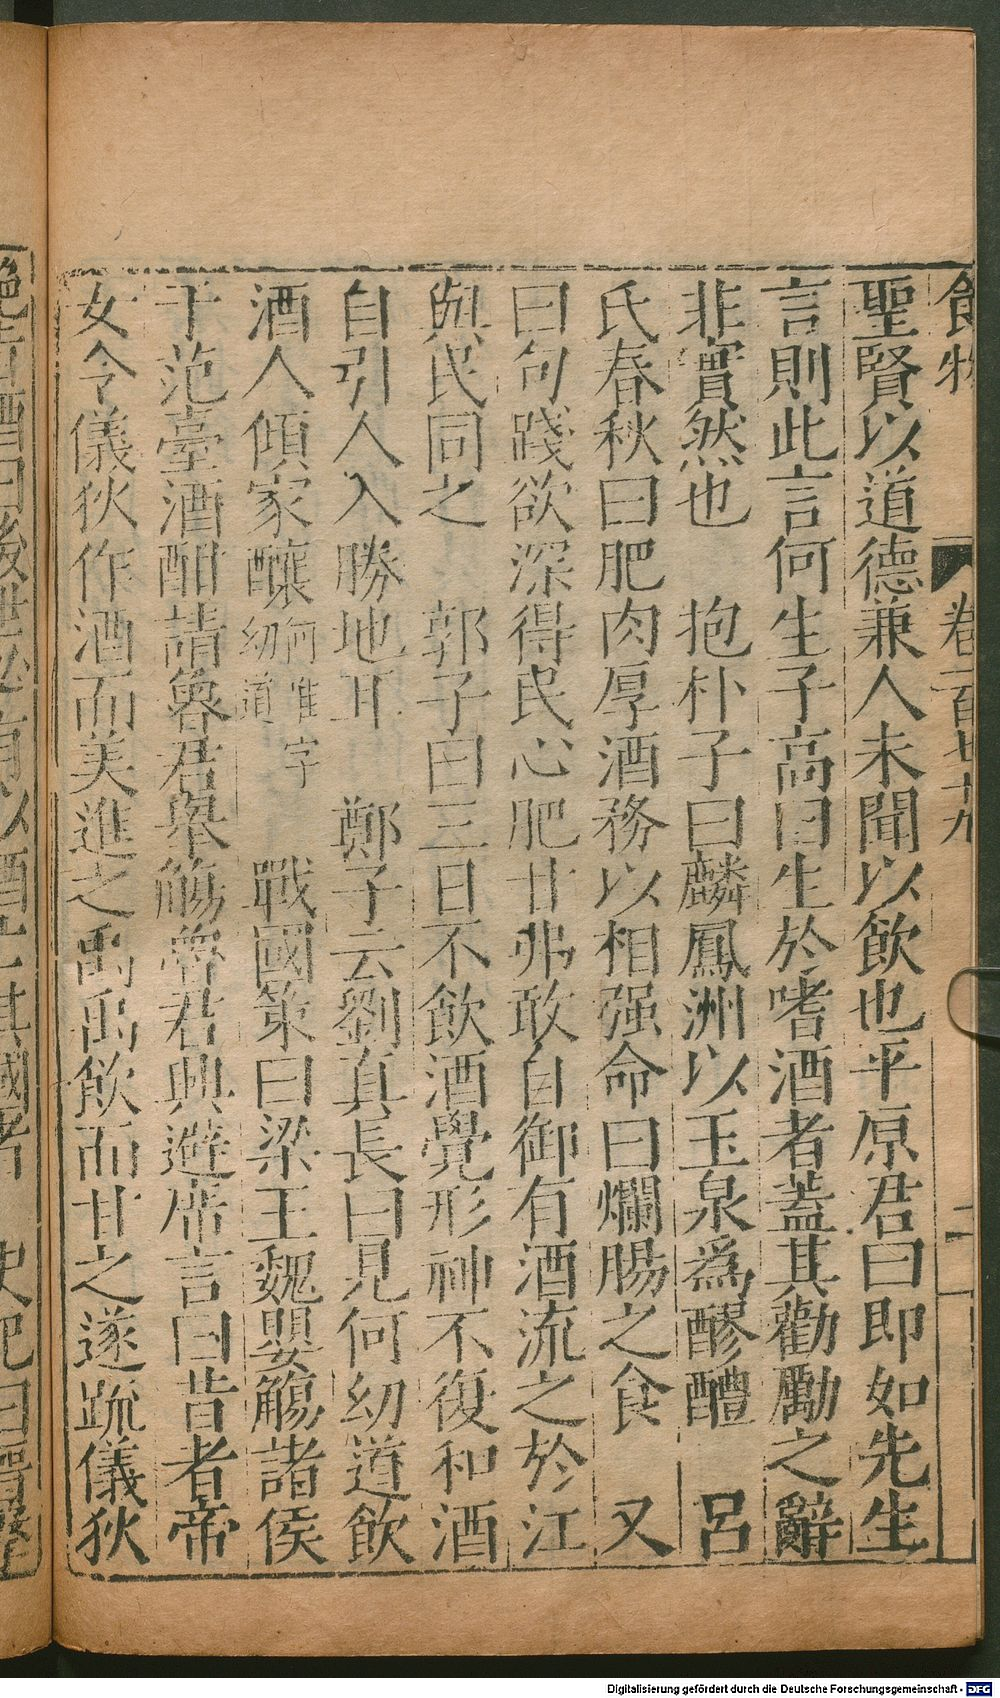 食物
卷二百七十九
二
聖賢以道德兼人未聞以飲也平原君曰即如先生
言則此言何生子高曰生於嗜酒者蓋其勸勵之辭
非實然也　抱朴子曰麟鳳洲以玉泉為醪醴　呂
氏春秋曰肥肉厚酒務以相强命曰爛腸之食　又
曰句踐欲深得民心肥甘弗敢自御有酒流之於江
與民同之　郭子曰三日不飲酒覺形神不復和酒
自引人入勝地耳　鄭子云劉真長曰見何幼道飲
酒人傾家釀何惟字幼道　戰國策曰梁王魏嬰觴諸侯
于范臺酒酣請魯君舉觴魯君興避席言曰昔者帝
女令儀狄作酒而美進之禹禹飲而甘之遂疏儀狄
曰後世必有以酒亡其國者　史記曰
Digitalisierung gefördert durch die Deutsche Forschungsgemeinschaft - DFG